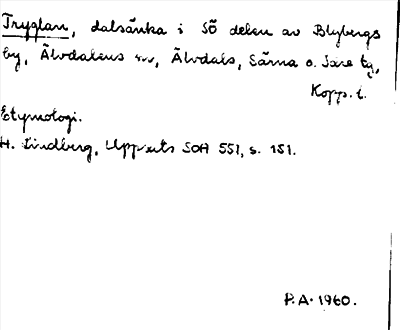 Tryglan, dalsänka i SÖ delen av Blybergs
by, Älvdalens sn, Älvdals, Särna o. Idre tg,
Kopp. l.
Etymologi.
H. Lindberg, Uppsats SOA 551, s. 151.
P.A. 1960.